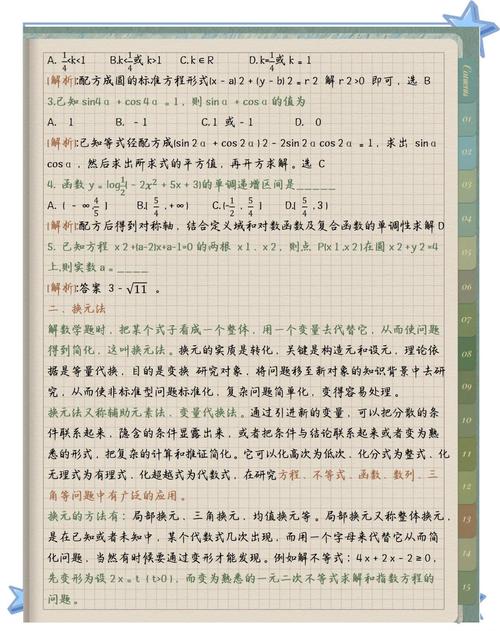 A. 1/4<k<1    B.k<1/4或 k>1    C.k∈R    D.k=1/4或 k=1
[解析]:配方成圆的标准方程形式(x-a)2+(y-b)2=r2 解 r2>0 即可，选 B
3.已知sin4α+cos4α=1，则 sinα+cosα的值为
A. 1    B. -1    C.1 或 -1    D. 0
[解析]:已知等式经配方成(sin2α+cos2α)2-2sin2αcos2α=1，求出 sinα
cosα，然后求出所求式的平方值，再开方求解。选 C
4. 函数 y=log1/2(-2x²+5x+3)的单调递增区间是_____
A. (-∞ 5/4]    B.[5/4,+∞)    C.(-1/2,5/4]    D.[5/4,3)
[解析]:配方后得到对称轴，结合定义域和对数函数及复合函数的单调性求解 D
5. 已知方程 x2+(a-2)x+a-1=0 的两根 x1、x2，则点 P(x1,x2)在圆x2+y2=4
上,则实数a=____
[解析]:答案 3-√11 。
二、换元法
解数学题时，把某个式子看成一个整体，用一个变量去代替它，从而使问题
得到简化，这叫换元法。换元的实质是转化，关键是构造元和设元，理论依
据是等量代换，目的是变换 研究对象，将问题移至新对象的知识背景中去研
究，从而使非标准型问题标准化，复杂问题简单化，变得容易处理。
换元法又称辅助元素法、变量代换法。通过引进新的变量，可以把分散的条
件联系起来，隐含的条件显露出来，或者把条件与结论联系起来或者变为熟
悉的形式，把复杂的计算和推证简化。它可以化高次为低次、化分式为整式、化
无理式为有理式、化超越式为代数式，在研究方程、不等式、函数、数列、三
角等问题中有广泛的应用。
换元的方法有：局部换元、三角换元、均值换元等。局部换元又称整体换元，
是在已知或者未知中，某个代数式几次出现，而用一个字母来代替它从而简
化问题，当然有时候要通过变形才能发现。例如解不等式：4x+2x-2≥0，
先变形为设2x=t (t>0)，而变为熟悉的一元二次不等式求解和指数方程的
问题。
01
02
03
04
05
06
07
08
09
10
11
12
13
14
15